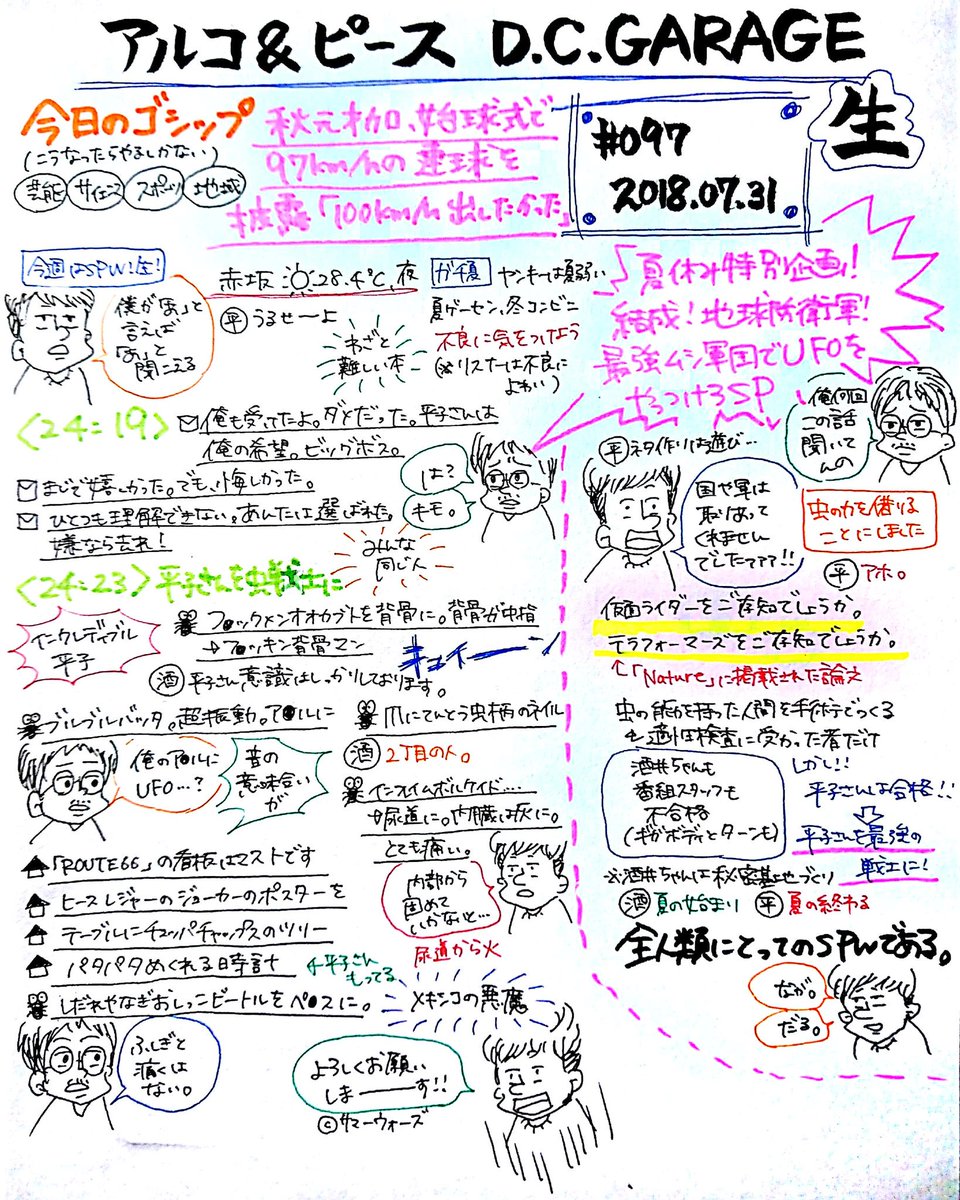 アルコ&ピース D.C.GARAGE
生
今日のゴシップ
(こうなったらやるしかない)
芸能 サイエンス スポーツ 地域
秋元才加、始球式で
97km/hの速球を
披露「100km/h出したかった」
#097
2018.07.31
今週はSPW!生!
僕が「あ」と
言えば
「あ」と
聞こえる
赤坂 28.4℃、夜
平 うるせ〜よ
わざと
難しい本
ガチ夏 ヤンキーは夏弱い
夏ゲーセン、冬コンビニ
不良に気をつけよう
(※リスナーは不良に
よわい)
夏休み特別企画!
結成!地球防衛軍!
最強ムシ軍団でUFOを
やっつけろSP
俺何回
この話
聞いて
んの
平 ネタ作りは遊び…
国や軍は
取りあって
くれません
でしたァァァ!!
虫の力を借りる
ことにしました
平 アホ。
仮面ライダーをご存知でしょうか。
テラフォーマーズをご存知でしょうか。
↑「Nature」に掲載された論文
虫の能力を持った人間を手術でつくる
適性検査に受かった者だけ
酒井ちゃんも
番組スタッフも
不合格
(ギガボディとターンも)
しかし!!
平子さんは合格!!
平子さんを最強の
戦士に!
※酒井ちゃんは秘密基地づくり
酒 夏の始まり 平 夏の終わる
全人類にとってのSPWである。
なが。
だる。
<24:19>
俺も受ってたよ。ダメだった。平子さんは
俺の希望。ビッグボス。
まじで嬉しかった。でも、悔しかった。
ひとつも理解できない。あんたは選ばれた。
嫌なら去れ!
は?
キモ。
みんな
同じ人
<24:23> 平子さんを虫戦士に
インクレディブル
平子
フ●ックメンオオカブトを背骨に。背骨が中指
→フ●ッキン背骨マン
キュイーーン
酒 平子さん意識はしっかりしております。
ブルブルバッタ。超振動。ア●ルに
俺のア●ルに
UFO…?
昔の
意味合いが
爪にてんとう虫柄のネイル
酒 2丁目の人。
インフレイムボルケイド…
尿道に。内臓は灰に。
とても痛い。
内部から
固めて
いかないと…
尿道から火
「ROUTE66」の看板はマストです
ヒースレジャーのジョーカーのポスターを
テーブルにチュッパチャップスのツリー
パタパタめくれる時計 ←平子さん
もってる
しだれやなぎおしっこビートルをペ●スに。
ふしぎと
痛くは
ない。
メキシコの悪魔
よろしくお願い
しまーーーす!!
©サマーウォーズ